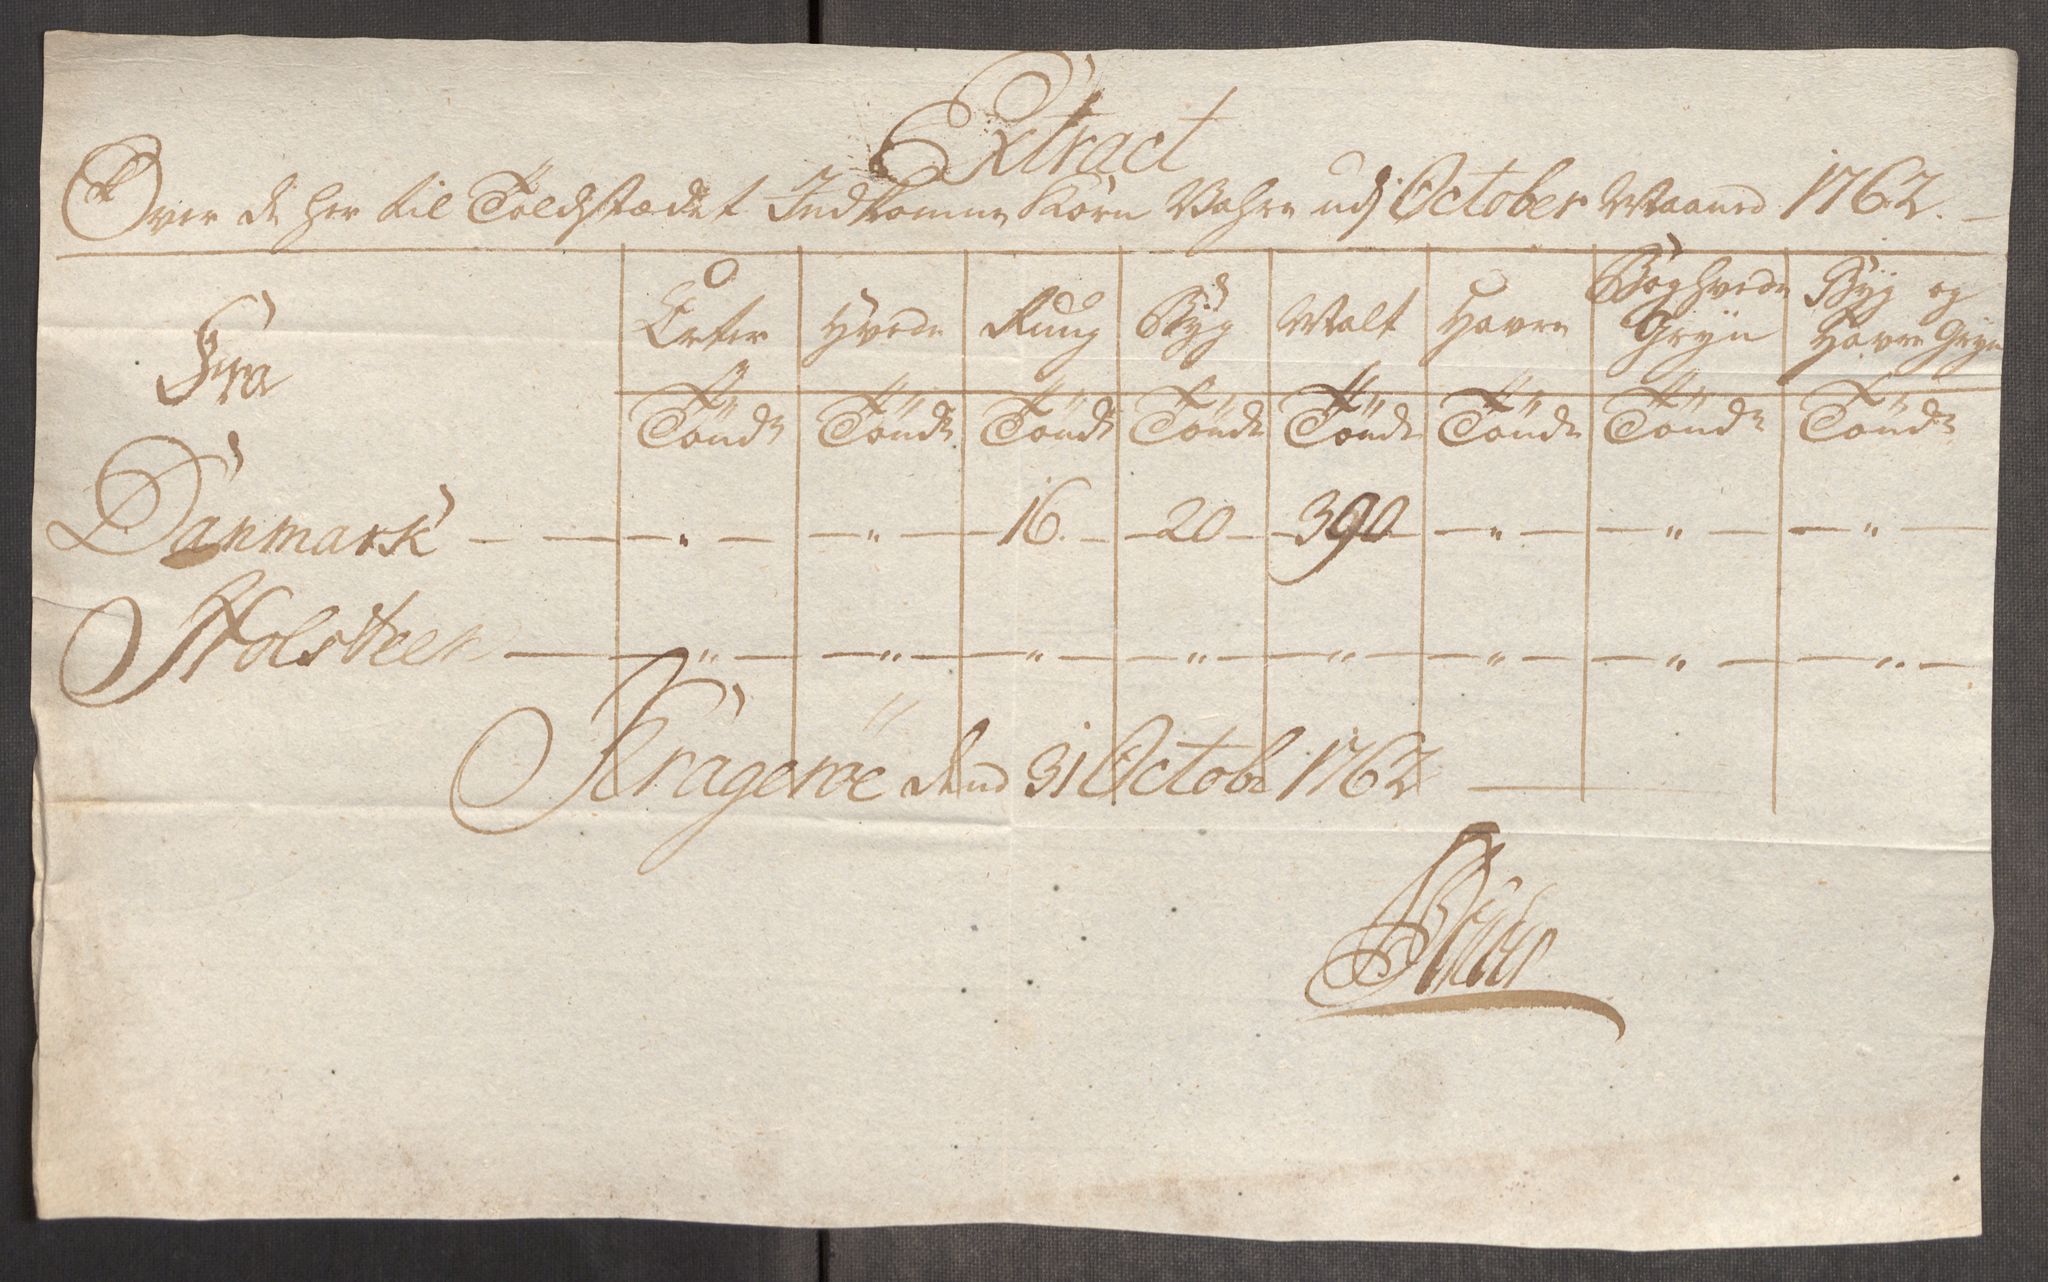 Extract
Over de her til Toldstædet Indkomne Korn Vahre udj October Maaned 1762.
Fra
Erter Hvede Rug Byg Malt Havre Boghvede Gryn Byg og Havre Gryn
Tönde Tönde Tönde Tönde Tönde Tönde Tönde Tönde
Danmark — — „ — — „ — 16. — 20 — 390 — „ — — „ — — „ —
Holsteen — — „ — — „ — — „ — — „ — — „ — — „ — — „ — — „ —
Krageröe dend 31 Octobr 1762